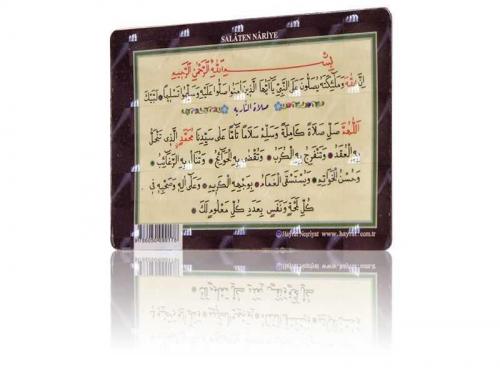 SALÂTEN NÂRİYE
بِسْمِ اللهِ الرَّحْمٰنِ الرَّحِيمِ
اِنَّ اللهَ وَمَلٰٓئِكَتَهُ يُصَلُّونَ عَلَى النَّبِيِّ يَٓا اَيُّهَا الَّذِينَ اٰمَنُوا صَلُّوا عَلَيْهِ وَسَلِّمُوا تَسْلِيمًا لَبَّيْكَ
صلاة النارية
اَللّٰهُمَّ صَلِّ صَلَاةً كَامِلَةً وَسَلِّمْ سَلَامًا تَامًّا عَلٰى سَيِّدِنَا مُحَمَّدٍ الَّذِي تَنْحَلُّ
بِهِ الْعُقَدُ وَتَنْفَرِجُ بِهِ الْكُرَبُ وَتُقْضٰى بِهِ الْحَوَٓائِجُ وَتُنَالُ بِهِ الرَّغَٓائِبُ
وَحُسْنُ الْخَوَاتِيمِ وَيُسْتَسْقَى الْغَمَامُ بِوَجْهِهِ الْكَرِيمِ وَعَلٰٓى اٰلِهِ وَصَحْبِهِ فِي
كُلِّ لَمْحَةٍ وَنَفَسٍ بِعَدَدِ كُلِّ مَعْلُومٍ لَكَ
Hayrat Neşriyat www.hayrat.com.tr